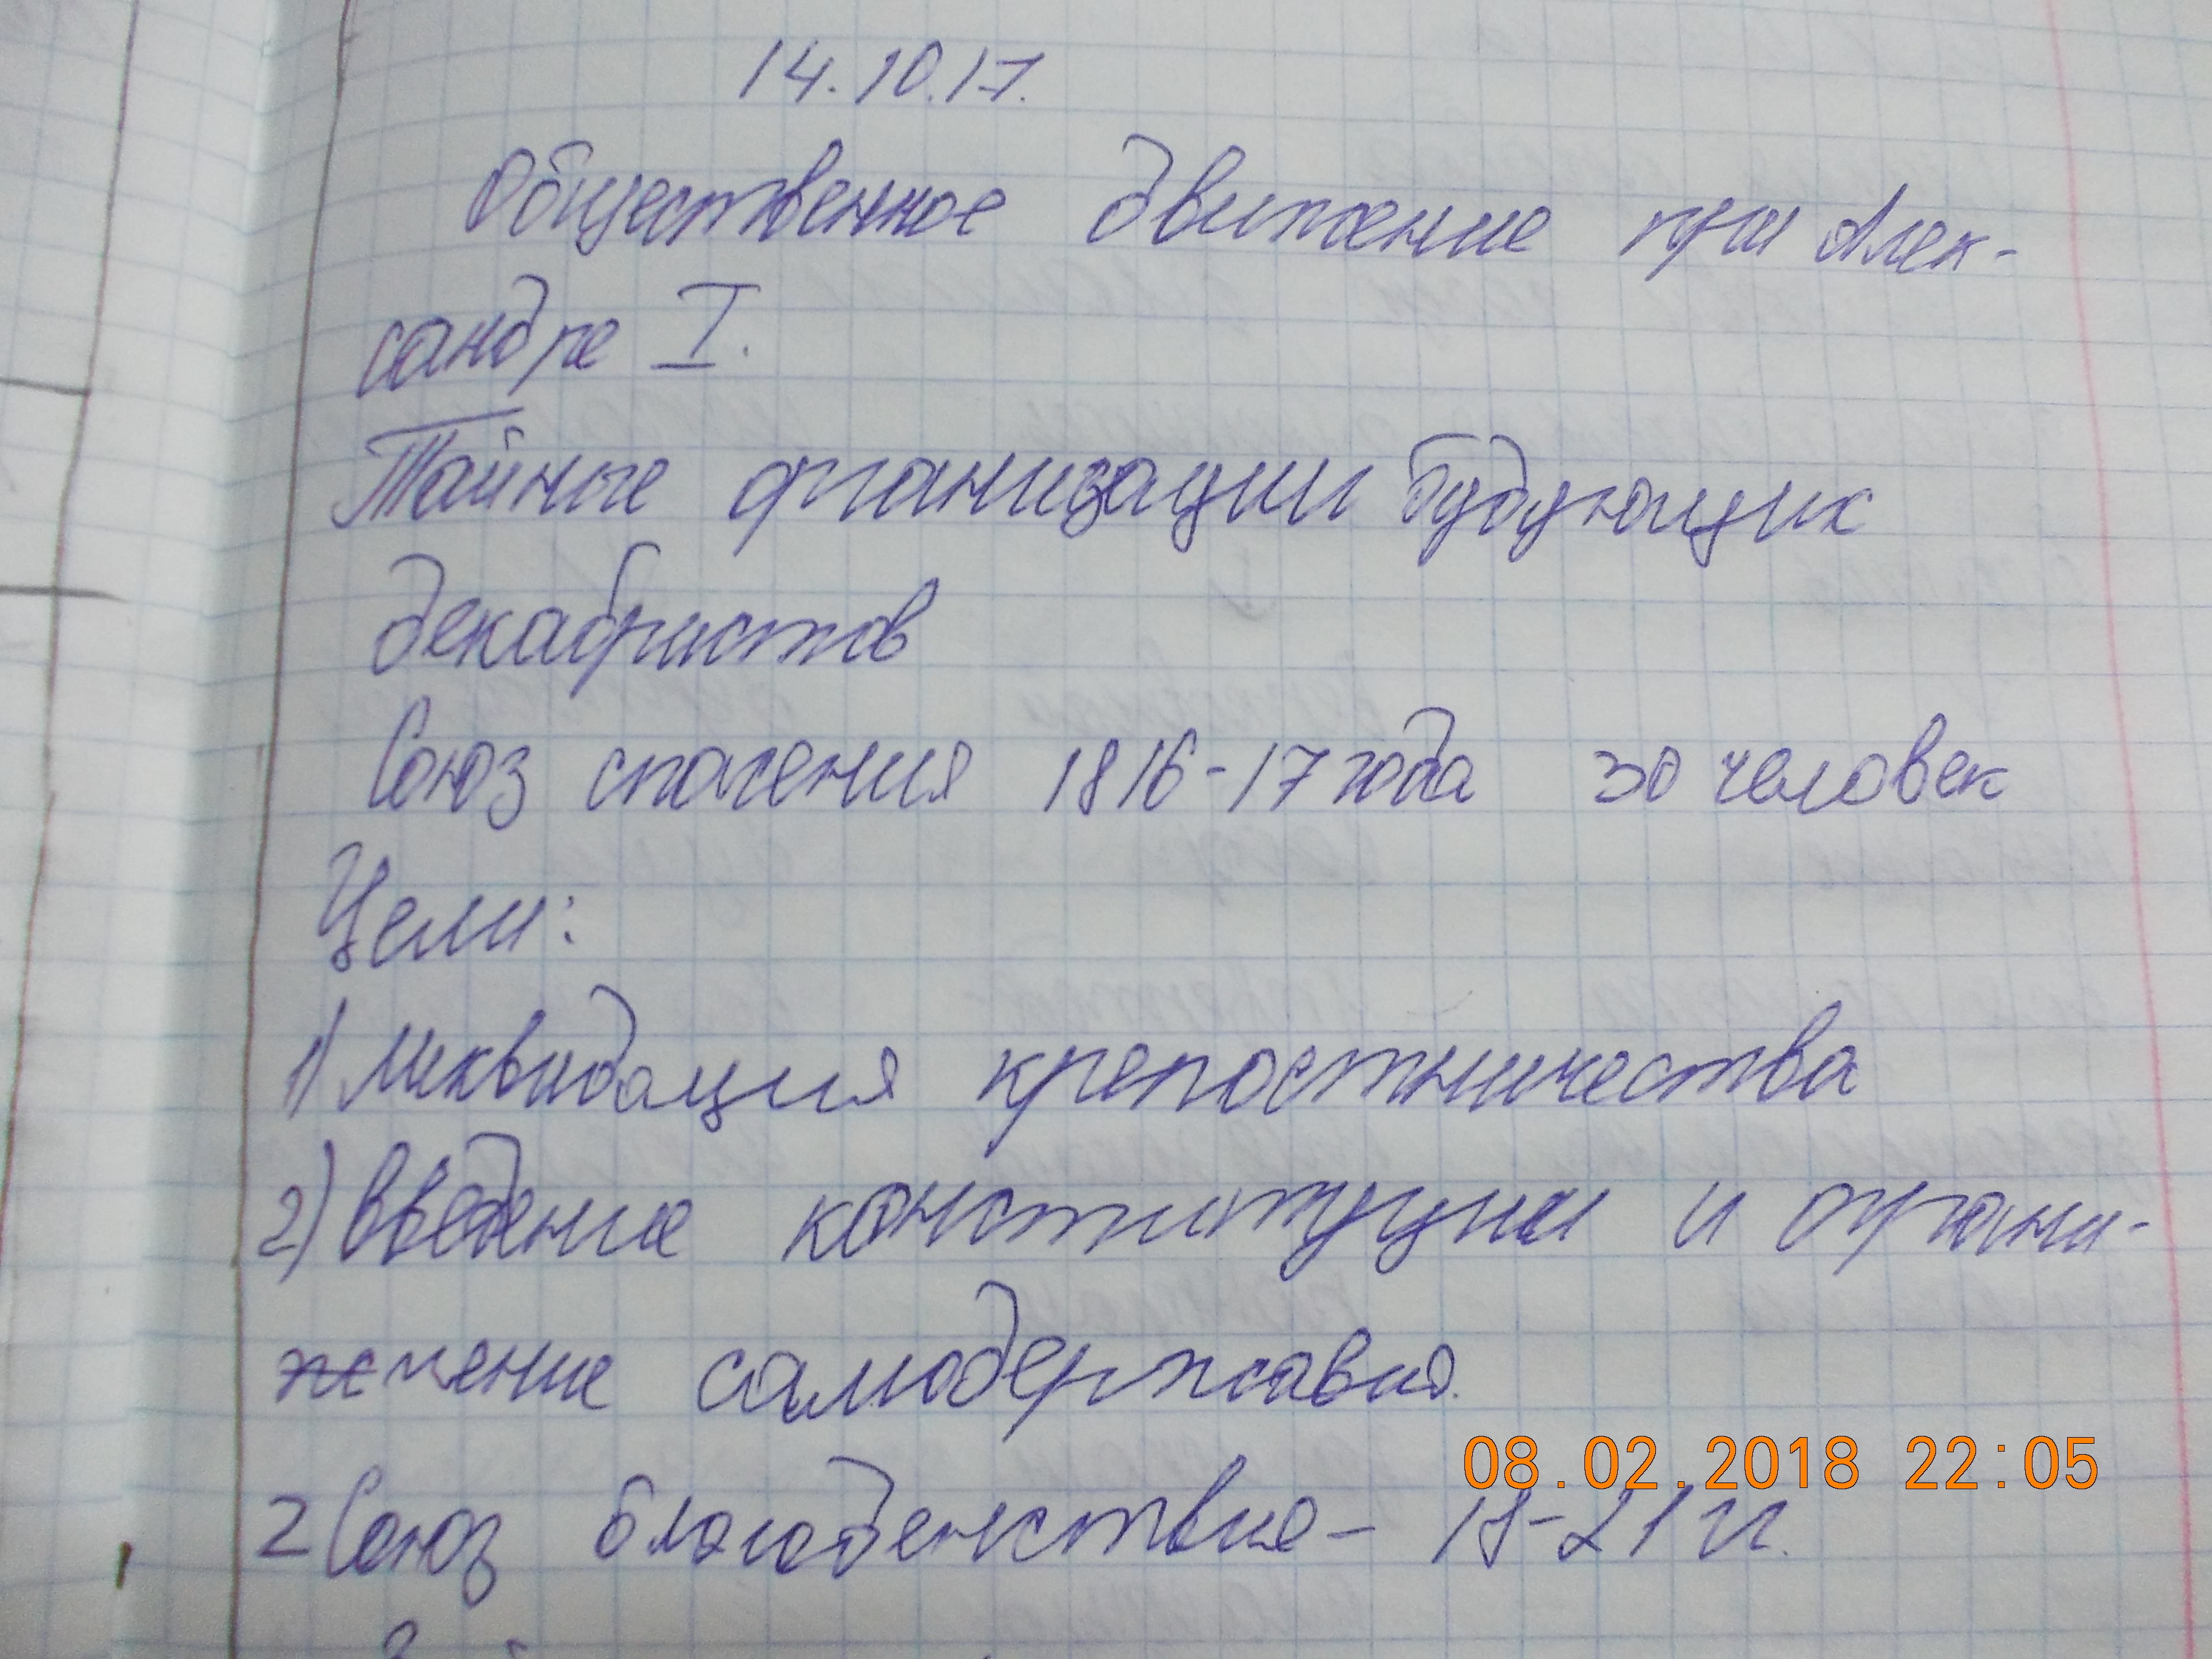 14.10.17.
Общественное движение при Алек-
сандре I.
Тайные организации будующих
декабристов
Союз спасения 1816-17 года 30 человек
Цели:
1) Ликвидация крепостничества
2) Введение конституции и ограни-
жмение самодержавия.
08.02.2018 22:05
2 Союз благоденствия - 18-21 гг.